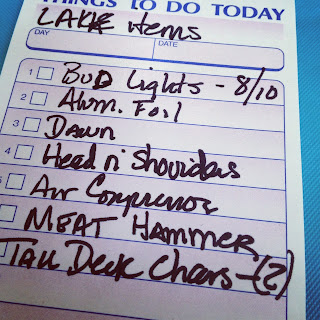 THINGS TO DO TODAY
LAKE items
DAY DATE
1 Bud Lights - 8/10
2 Alum. Foil
3 Dawn
4 Head n' Shoulders
5 Air Compressor
MEAT HAMMER
Tall Deck Chairs - (2)